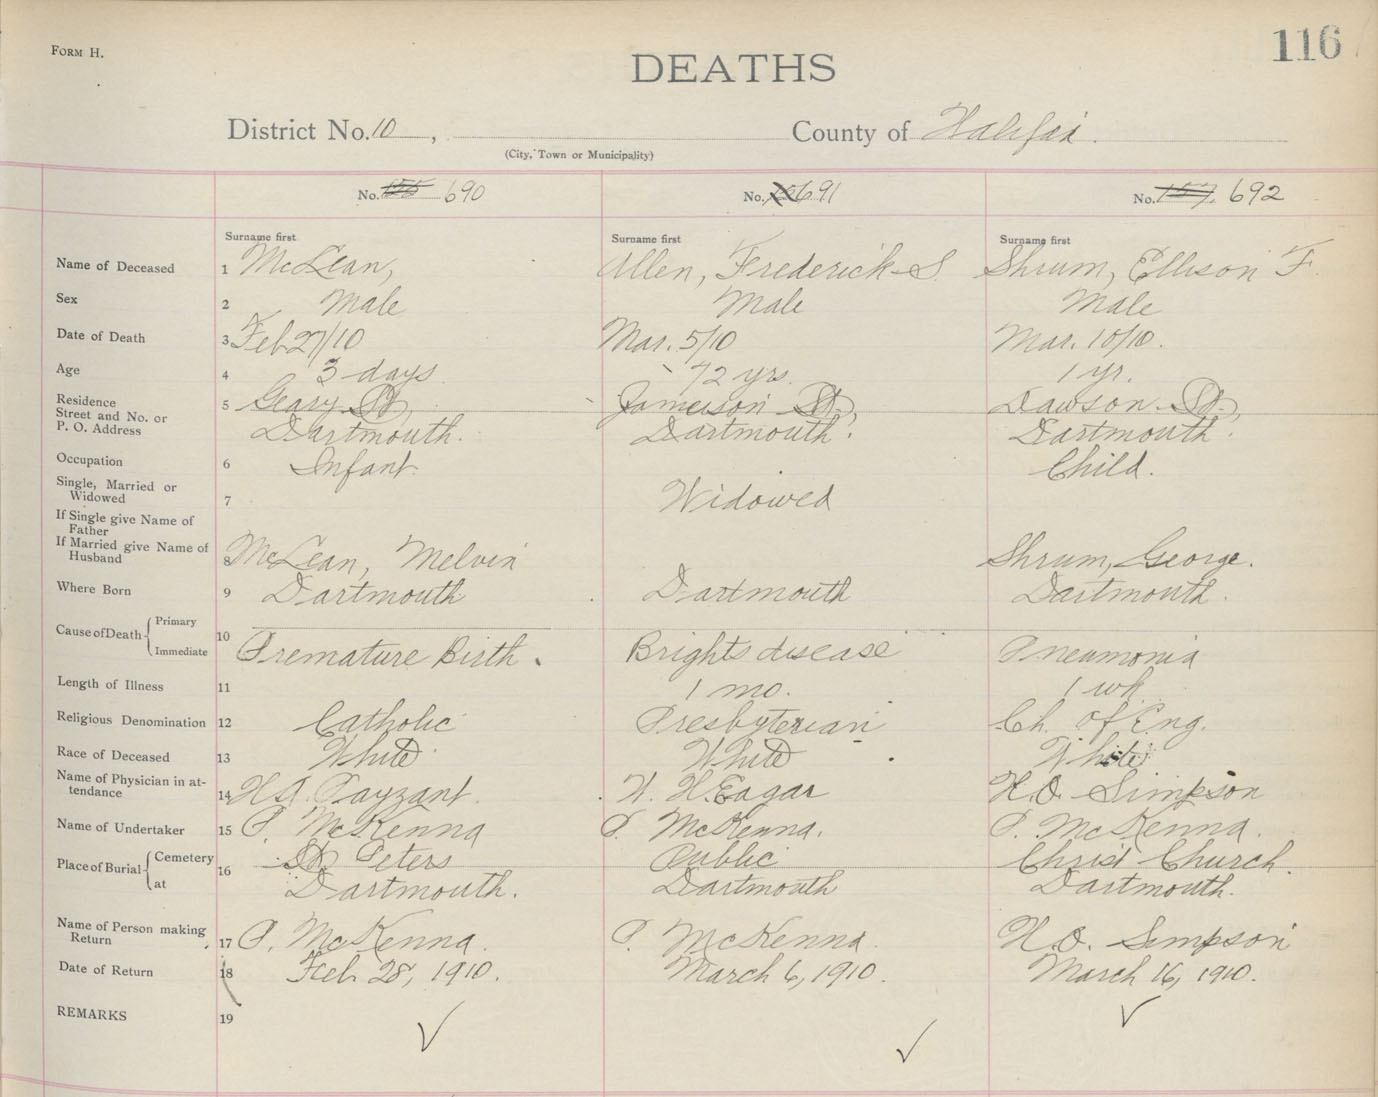 FORM H.
116
DEATHS
District No. 10, County of Halifax.
(City, Town or Municipality)
No. 690 No. 691 No. 157. 692
Surname first Surname first Surname first
Name of Deceased 1 McLean, Allen, Frederick S Shrum, Ellison F.
Sex 2 Male Male Male
Date of Death 3 Feb 27/10 Mar. 5/10 Mar. 10/10.
Age 4 3 days 72 yrs. 1 yr.
Residence Street and No. or P. O. Address 5 Geary St, Jameison St, Dawson St,
Dartmouth. Dartmouth. Dartmouth.
Occupation 6 Infant Child.
Single, Married or Widowed 7 Widowed
If Single give Name of Father
If Married give Name of Husband 8 McLean, Melvin Shrum, George.
Where Born 9 Dartmouth Dartmouth Dartmouth.
Cause of Death { Primary Immediate 10 Premature Birth. Brights disease Pneumonia
Length of Illness 11 1 mo. 1 wk
Religious Denomination 12 Catholic Presbyterian Ch. of Eng.
Race of Deceased 13 White White White
Name of Physician in attendance 14 Payzant. W. H. Eagar H.O. Simpson
Name of Undertaker 15 P. McKenna P. McKenna. P. McKenna.
Place of Burial { Cemetery at 16 St Peters Public Christ Church.
Dartmouth. Dartmouth Dartmouth.
Name of Person making Return 17 P. McKenna. P. McKenna. H.O. Simpson
Date of Return 18 Feb 28, 1910. March 6, 1910. March 16, 1910.
REMARKS 19 ✓ ✓ ✓